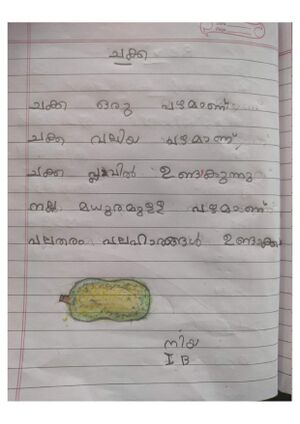 ചക്ക
ചക്ക ഒരു പഴമാണ്
ചക്ക വലിയ പഴമാണ്
ചക്ക പ്ലാവിൽ ഉണ്ടാകുന്നു
നല്ല മധുരമുള്ള പഴമാണ്
പലതരം പലഹാരങ്ങൾ ഉണ്ടാക്കാ
നിയ
I B